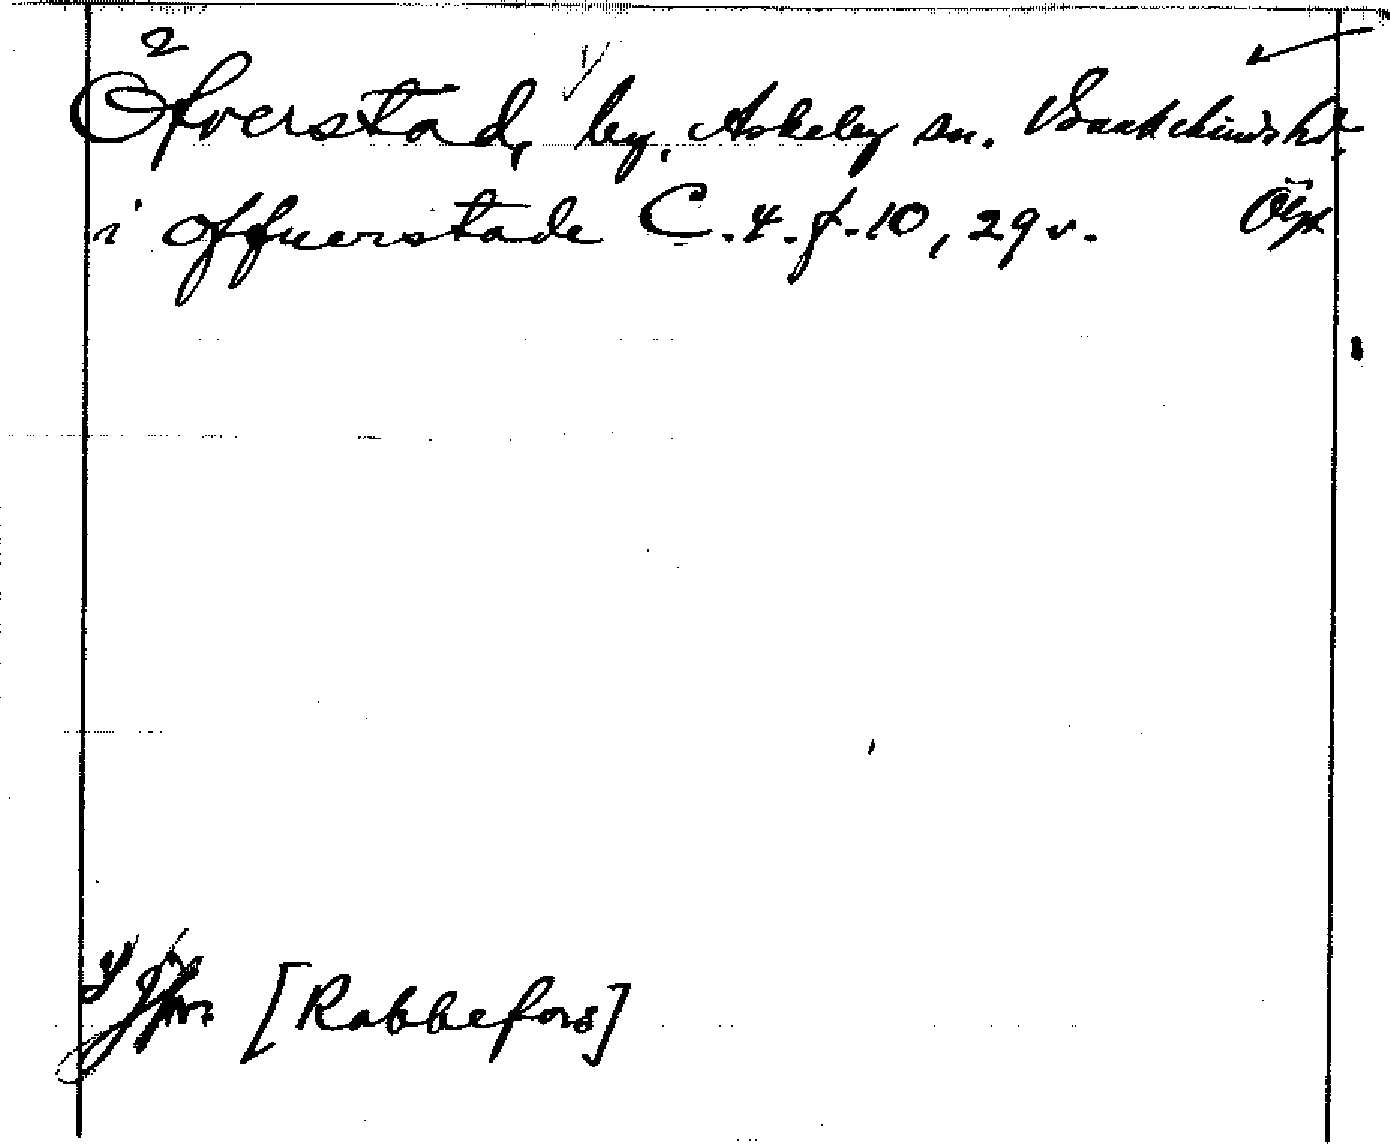 2
Öfverstad, by, Askeby sn. Bankekinds hd.
i offuerstade C. 4. f. 10, 29 v. Ög
Jfr. [Rabbefors]